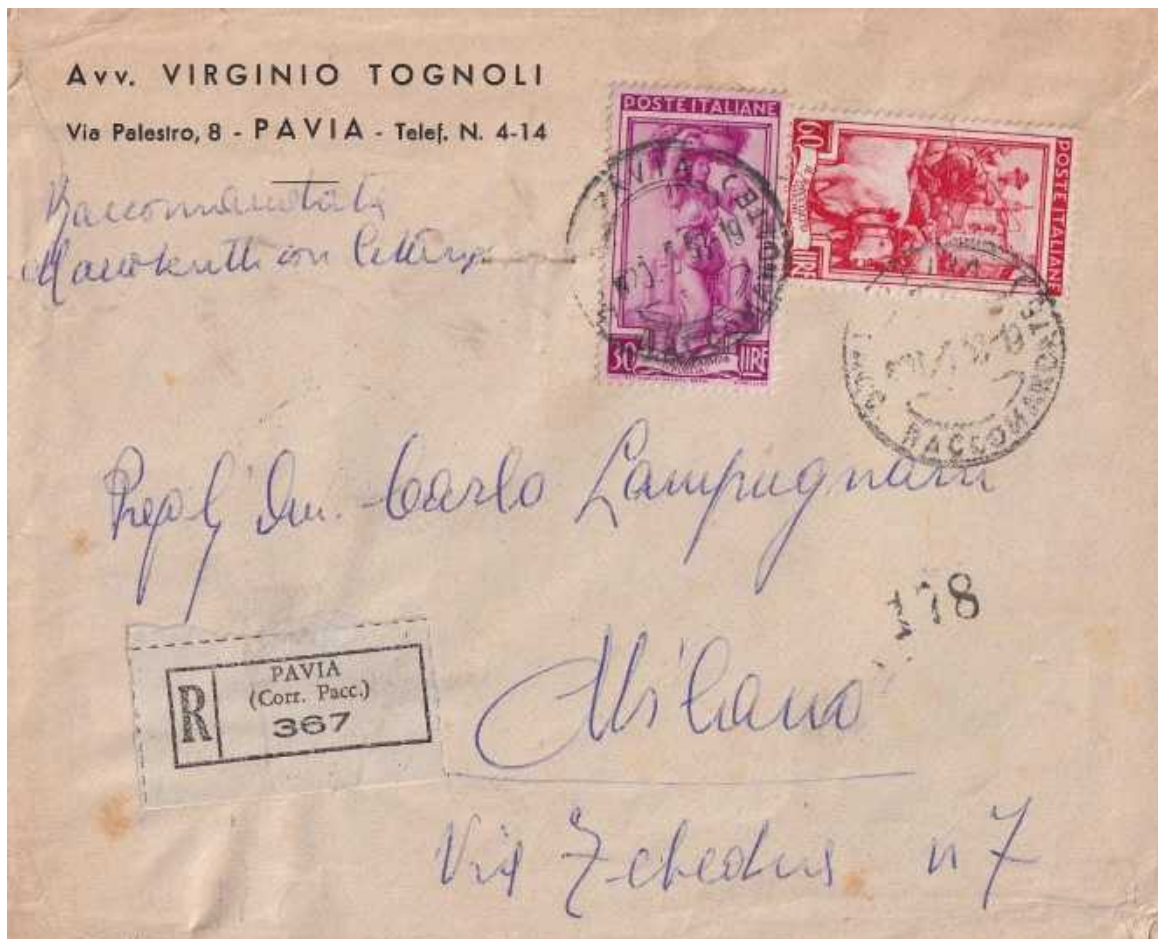 Avv. VIRGINIO TOGNOLI
Via Palestro, 8 - PAVIA - Telef. N. 4-14
Raccomandata
Manoscritti con lettera
POSTE ITALIANE
30 LIRE
POSTE ITALIANE
60 LIRE
PAVIA
RACCOMANDATE
Carlo Lampugnani
178
R
PAVIA
(Corr. Pacc.)
367
Milano
Via Zebedia n 7